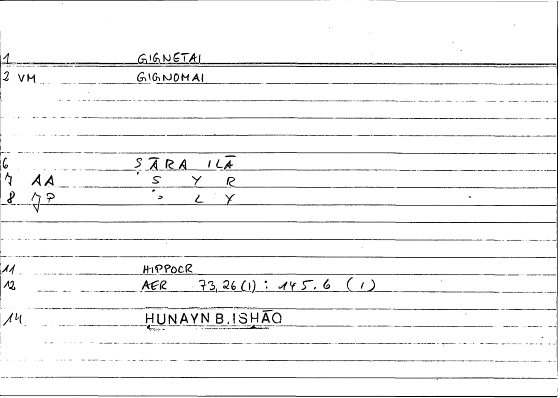 1 GIGNETAI
2 VM GIGNOMAI
6 ṢĀRA ILĀ
7 AA Ṣ Y R
8 JP ʾ L Y
11 HIPPOCR
12 AER 73,26(1) : 145.6 (1)
14 ḤUNAYN B. ISḤĀQ